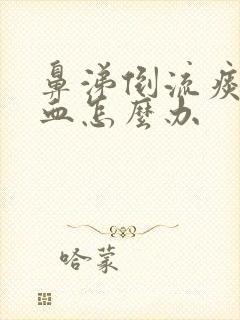 鼻涕倒流痰
血怎麼办
哈蒙